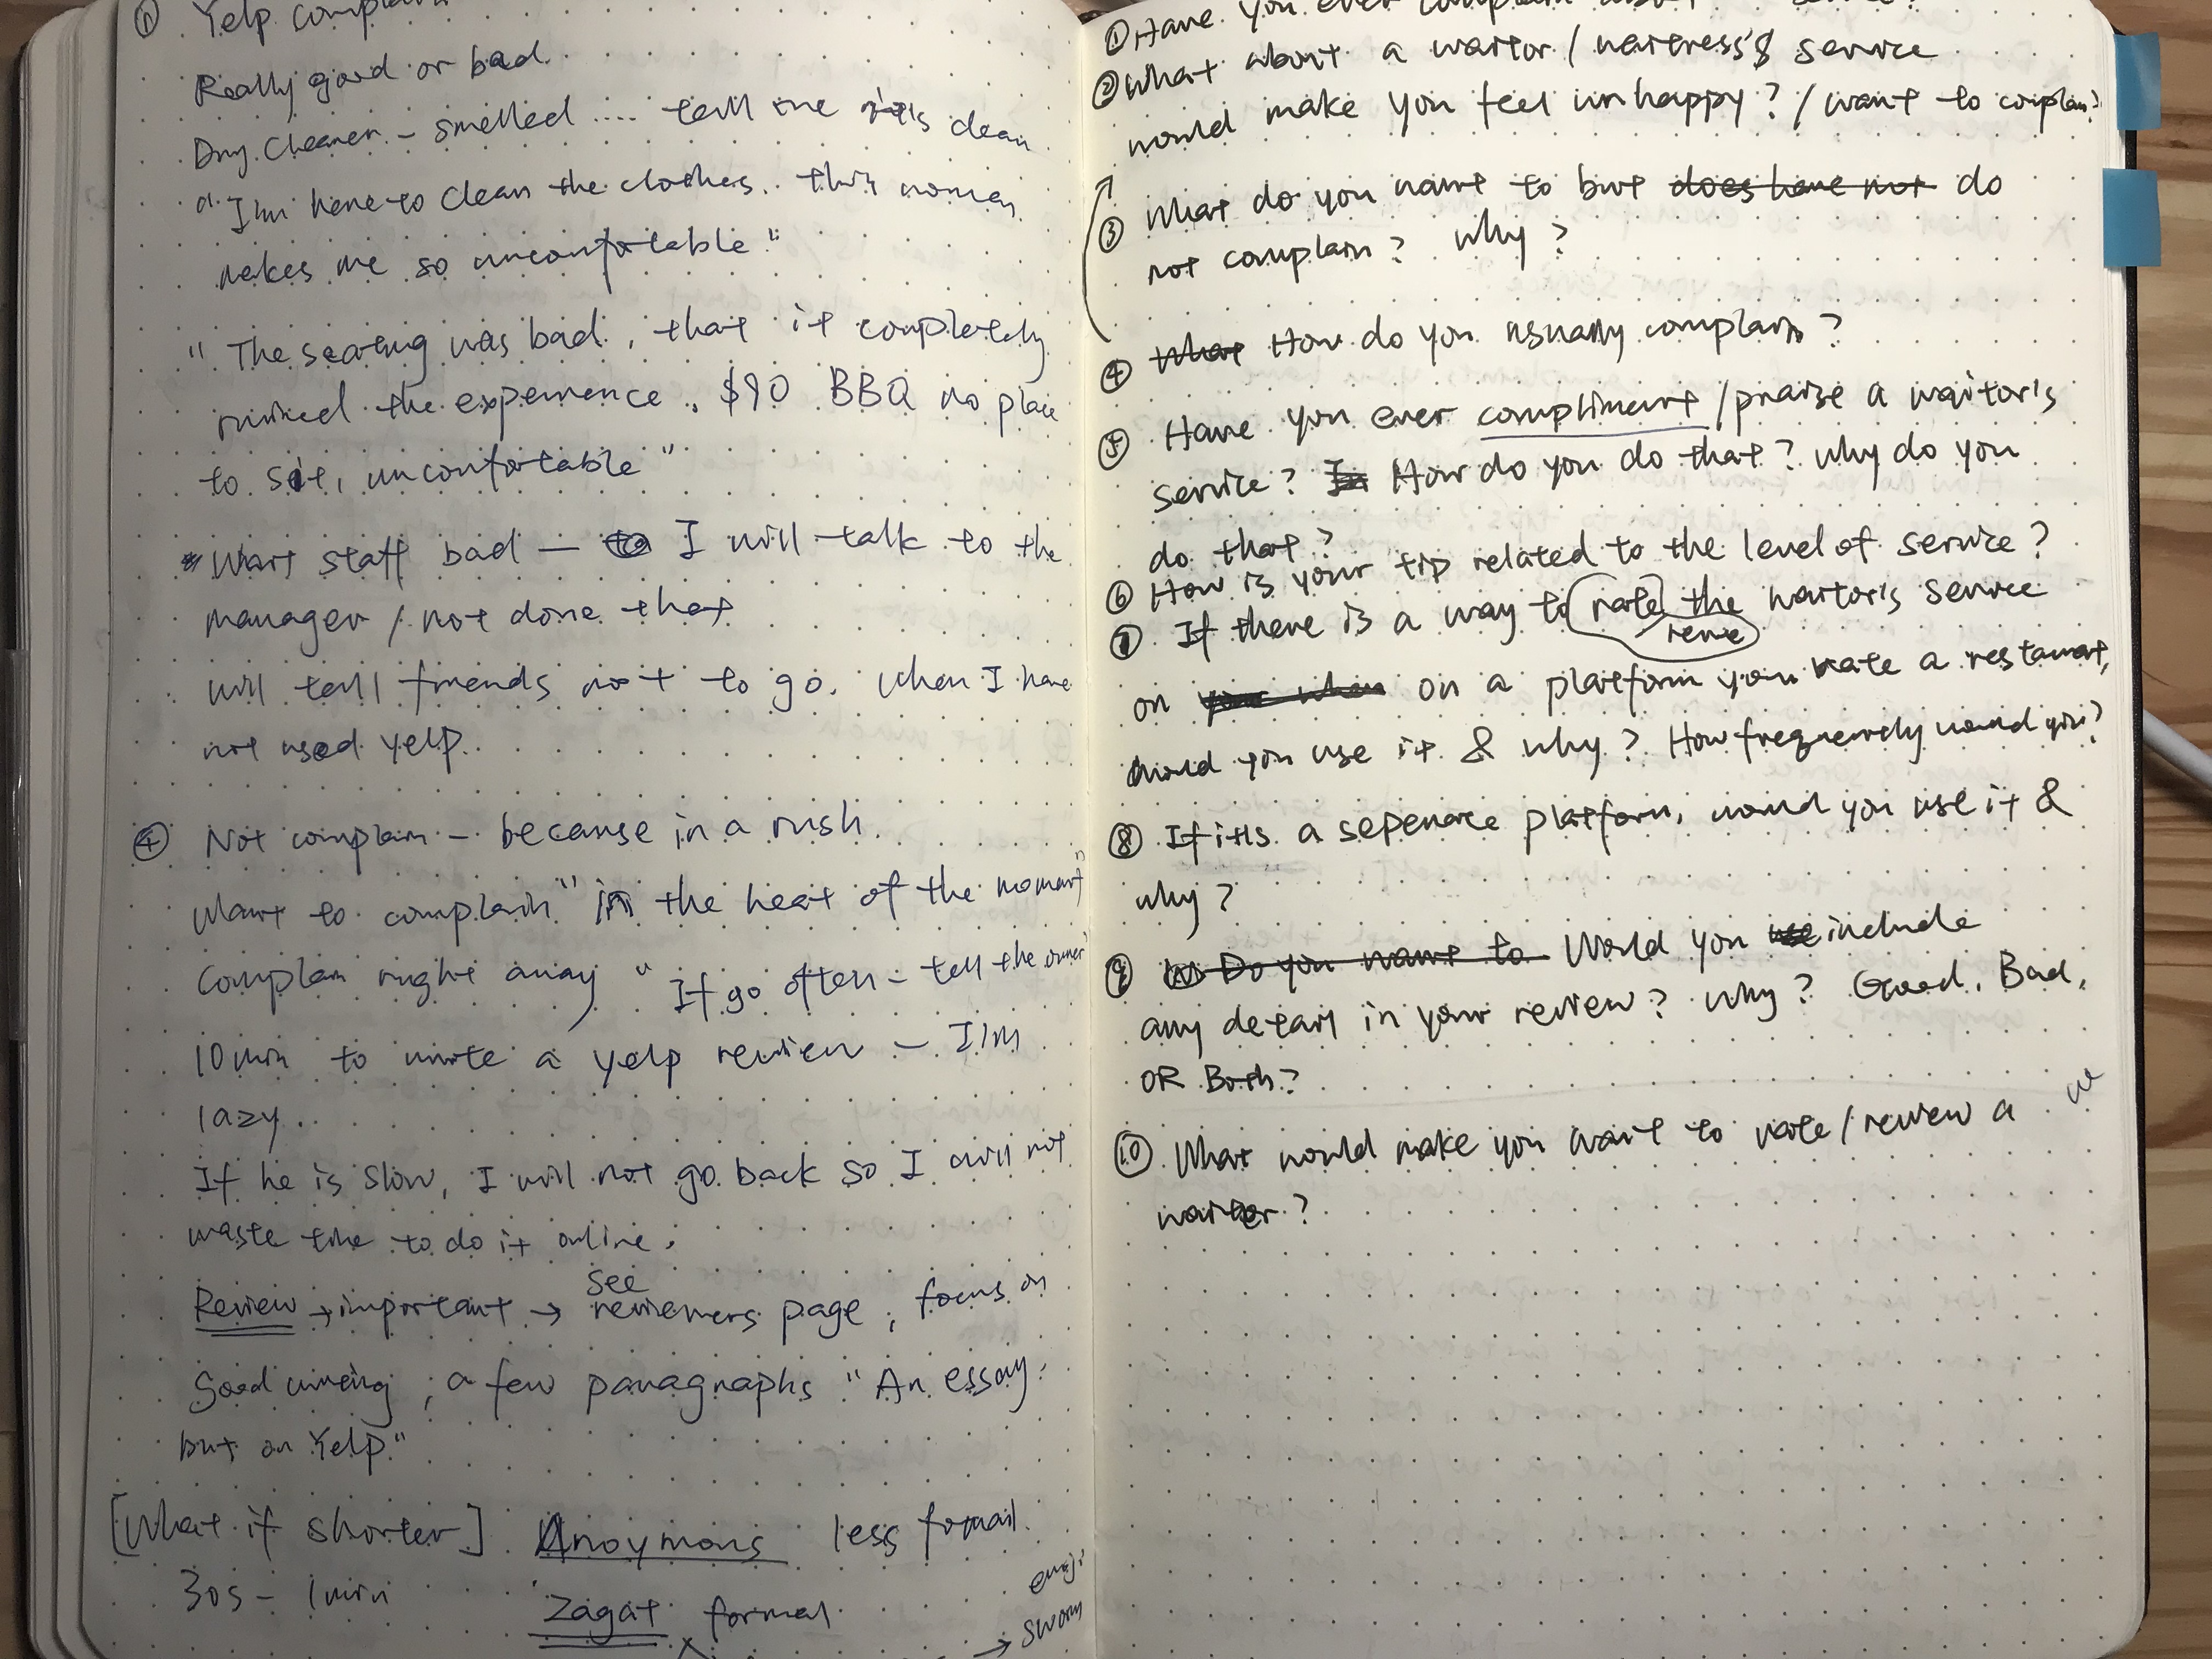 ① Yelp complain
Really good or bad.
Dry Cleaner - smelled .... tell me it's clean
"I'm here to clean the clothes.. this woman
makes me so uncomfortable"
"The seating was bad, that it completely
ruined the experience. $90 BBQ no place
to sit, uncomfortable"
* Wait staff bad — I will talk to the
manager / not done that
will tell friends not to go. when I have
not used yelp.
④ Not complain - because in a rush.
Want to complain "in the heat of the moment"
Complain right away " If go often - tell the owner
10 min to write a yelp review - I'm
lazy..
If he is slow, I will not go back so I will not
waste time to do it online.
see
Review → important → reviewers page ; focus on
Good ; a few paragraphs "An essay.
but on Yelp"
[What if shorter] Anoymous less formal.
30s - 1min Zagat formal
emoji
→ swarm
① Have you ever complain about service?
② What about a waitor / waitress's service
would make you feel unhappy? / want to complain?
③ What do you want to but does have not do
not complain? Why?
④ What How do you usually complain?
⑤ Have you ever compliment / praise a waitor's
service? In How do you do that? Why do you
do that?
⑥ How is your tip related to the level of service?
⑦ If there is a way to rate the waitor's service
on on a platform you rate a restaurant,
would you use it & why? How frequently would you?
⑧ If it's a seperate platform, would you use it &
why?
⑨ Do you want to Would you use include
any detail in your review? Why? Good, Bad,
OR Both?
⑩ What would make you want to rate / review a
waiter?